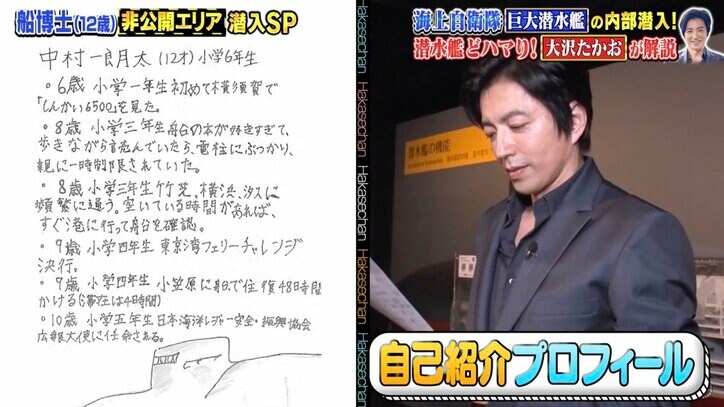 船博士(12歳) 非公開エリア 潜入SP
中村一朗太(12才) 小学6年生
・6歳 小学一年生 初めて横須賀で
「しんかい6500」を見た。
・8歳 小学三年生 船の本が好きすぎて、
歩きながら読んでいたら、電柱にぶつかり、
親に一時制限されていた。
・8歳 小学三年生 竹芝、横浜、汐入に
頻繁に通う。空いている時間があれば、
すぐ港に行って船を確認。
・9歳 小学四年生 東京湾フェリーチャレンジ
決行。
・9歳 小学四年生 小笠原に船で往復48時間
かける(滞在は4時間)
・10歳 小学五年生 日本海洋レジャー安全・振興協会
広報大使に任命される。
Hakasechan Hakasechan Hakasechan Hakasechan Hakasechan Hakasechan
海上自衛隊 巨大潜水艦の内部潜入!
潜水艦どハマり! 大沢たかおが解説
潜水艦の機能
自己紹介プロフィール